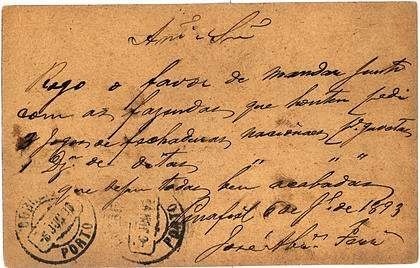 Am.º e Snr
Rogo o favor de mandar junto
com as fazendas que hontem pedi
Jogos de fechaduras nacionaes pª gavetas
Dz.ª de Ditas " " "
que sejam todas bem acabadas
Penafiel 6 de Jº de 1893
José
PORTO
PORTO